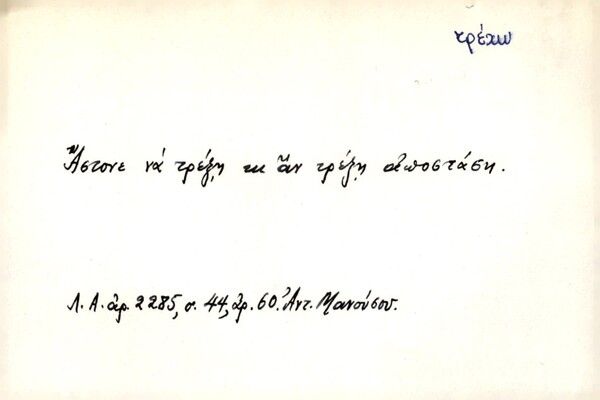 τρέχω
Ἄστονε νά τρέξῃ κι ἄν τρέξῃ ἀποστάσῃ.
Λ. Α. ἀρ. 2285, σ. 44, ἀρ. 60. Ἀντ. Μανούσου.